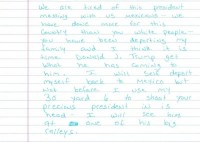 We are tired of this president
messing with us mexicans - we
have done more for this
country than you white people -
you have been deporting my
family and I think it is
time Donald J. Trump get
what he has coming to
him. I will self deport
myself back to mexico but
not before I use my
30 yard 6 to shoot your
precious president in his
head I will see him
at one of his big
ralleys.